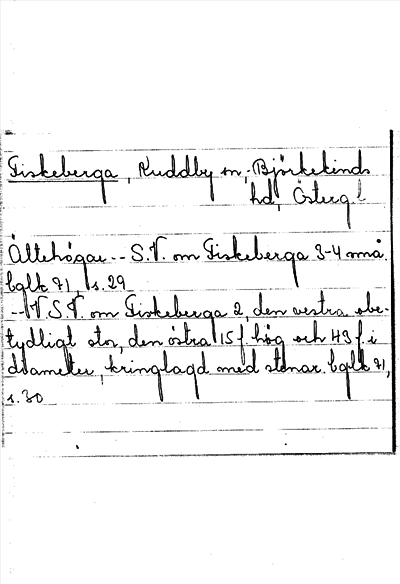 Fiskeberga, Kuddby sn, Björkekinds
hd, Östergl
Ättehögar -- S.V. om Fiskeberga 3-4 små.
bglk 71, s. 29
-- V.S.V. om Fiskeberga 2, den vestra obe-
tydligt stor, den östra 15 f. hög och 43 f. i
diameter, kringlagd med stenar. bglk 71,
s. 30